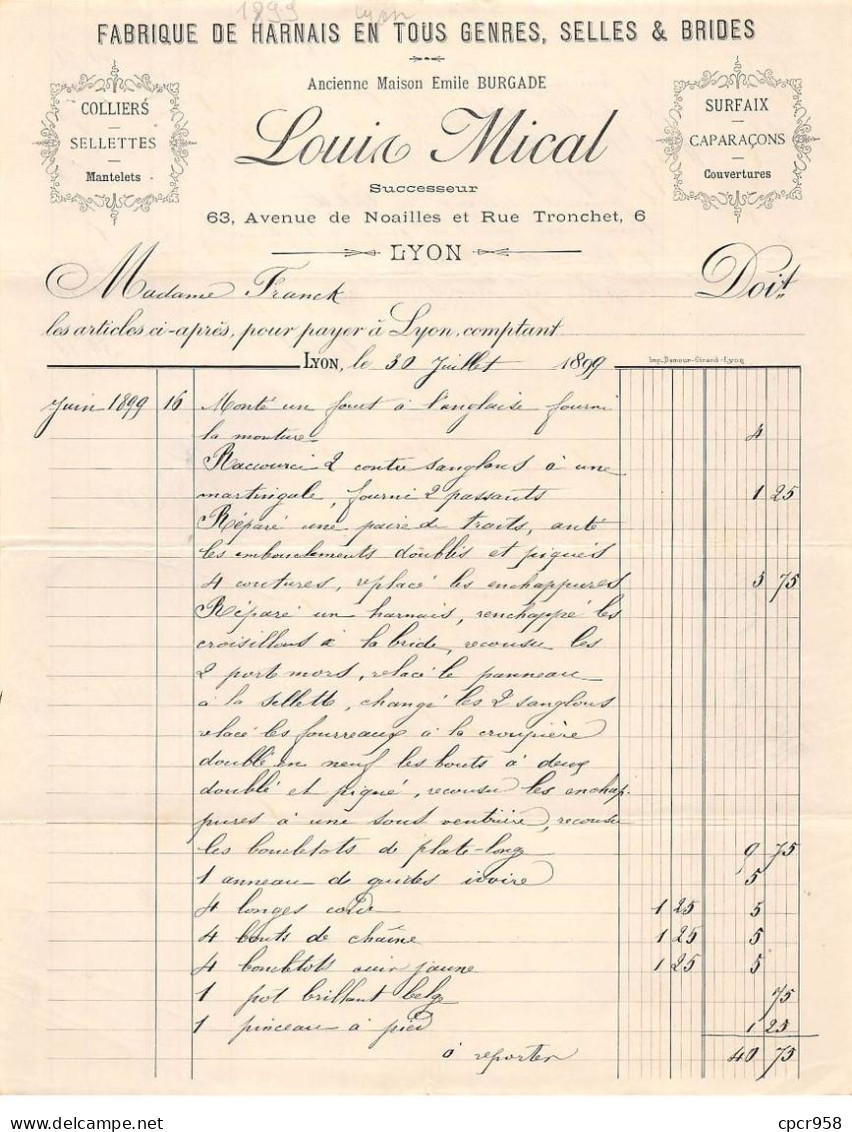 1899 Lyon
FABRIQUE DE HARNAIS EN TOUS GENRES, SELLES & BRIDES
Ancienne Maison Emile BURGADE
COLLIERS
SELLETTES
Mantelets
Louis Mical
SURFAIX
CAPARAÇONS
Couvertures
Successeur
63, Avenue de Noailles et Rue Tronchet, 6
LYON
Madame Franck Doit
les articles ci-après, pour payer à Lyon, comptant
Imp. Damour-Girard-Lyon
LYON, le 30 Juillet 1899
Juin 1899 16 Monté un fouet à l'anglaise fourni
la monture 4
Raccourci 2 contre sanglons à une
martingale, fourni 2 passants 1 25
Réparé une paire de traits, anté
les embouclements doublés et piqués
4 coutures, replacé les enchappures 3 75
Réparé un harnais, renchappé les
croisillons à la bride, recousu les
2 porte mors, relacé le panneau
à la sellette, changé les 2 sanglons
relacé les fourreaux à la croupière
doublé en neuf les bouts à deux
doublé et piqué, recousu les enchap-
pures à une sous ventrière, recousu
les bouclotots de plate-longe 9 75
1 anneau de guides ivoire 5
4 longes corde 1 25 5
4 bouts de chaîne 1 25 5
4 bouclotots cuir jaune 1 25 5
1 pot brillant belge 75
1 pinceau à pied 1 25
à reporter 40 75
cpcr958